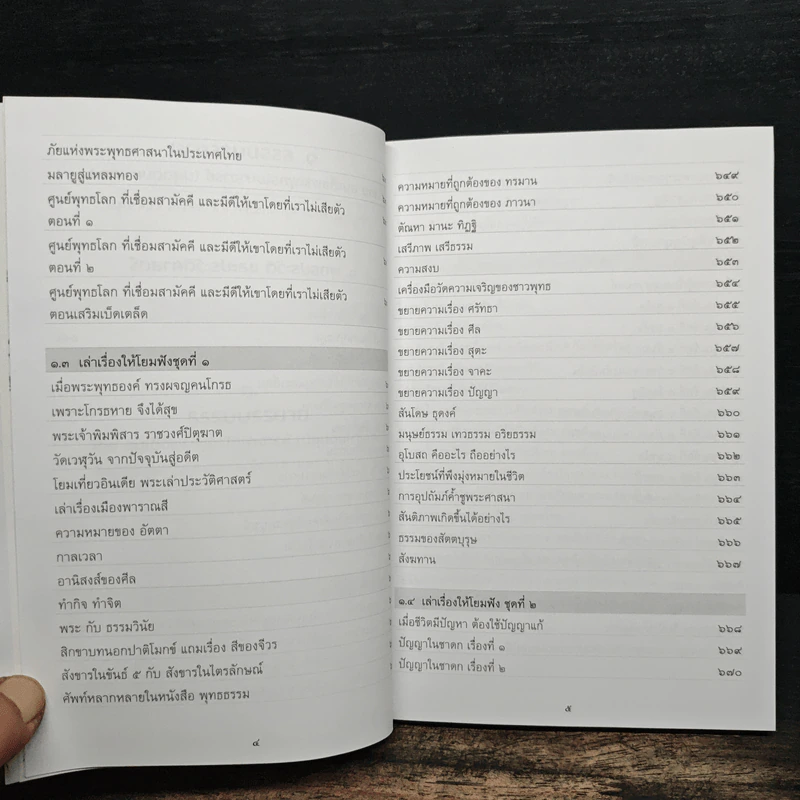 ภัยแห่งพระพุทธศาสนาในประเทศไทย
มลายูสู่แหลมทอง
ศูนย์พุทธโลก ที่เชื่อมสามัคคี และมีดีให้เขาโดยที่เราไม่เสียตัว
ตอนที่ ๑
ศูนย์พุทธโลก ที่เชื่อมสามัคคี และมีดีให้เขาโดยที่เราไม่เสียตัว
ตอนที่ ๒
ศูนย์พุทธโลก ที่เชื่อมสามัคคี และมีดีให้เขาโดยที่เราไม่เสียตัว
ตอนเสริมเบ็ดเตล็ด
๑.๓ เล่าเรื่องให้โยมฟังชุดที่ ๑
เมื่อพระพุทธองค์ ทรงผจญคนโกรธ
เพราะโกรธหาย จึงได้สุข
พระเจ้าพิมพิสาร ราชวงศ์ปิตุฆาต
วัดเวฬุวัน จากปัจจุบันสู่อดีต
โยมเที่ยวอินเดีย พระเล่าประวัติศาสตร์
เล่าเรื่องเมืองพาราณสี
ความหมายของ อัตตา
กาลเวลา
อานิสงส์ของศีล
ทำกิจ ทำจิต
พระ กับ ธรรมวินัย
สิกขาบทนอกปาติโมกข์ แถมเรื่อง สีของจีวร
สังขารในขันธ์ ๕ กับ สังขารในไตรลักษณ์
ศัพท์หลากหลายในหนังสือ พุทธธรรม
๔
ความหมายที่ถูกต้องของ ทรมาน ๖๔๙
ความหมายที่ถูกต้องของ ภาวนา ๖๕๐
ตัณหา มานะ ทิฏฐิ ๖๕๑
เสรีภาพ เสรีธรรม ๖๕๒
ความสงบ ๖๕๓
เครื่องมือวัดความเจริญของชาวพุทธ ๖๕๔
ขยายความเรื่อง ศรัทธา ๖๕๕
ขยายความเรื่อง ศีล ๖๕๖
ขยายความเรื่อง สุตะ ๖๕๗
ขยายความเรื่อง จาคะ ๖๕๘
ขยายความเรื่อง ปัญญา ๖๕๙
สันโดษ ธุดงค์ ๖๖๐
มนุษย์ธรรม เทวธรรม อริยธรรม ๖๖๑
อุโบสถ คืออะไร ถืออย่างไร ๖๖๒
ประโยชน์ที่พึงมุ่งหมายในชีวิต ๖๖๓
การอุปถัมภ์ค้ำชูพระศาสนา ๖๖๔
สันติภาพเกิดขึ้นได้อย่างไร ๖๖๕
ธรรมของสัตตบุรุษ ๖๖๖
สังฆทาน ๖๖๗
๑.๔ เล่าเรื่องให้โยมฟัง ชุดที่ ๒
เมื่อชีวิตมีปัญหา ต้องใช้ปัญญาแก้ ๖๖๘
ปัญญาในชาดก เรื่องที่ ๑ ๖๖๙
ปัญญาในชาดก เรื่องที่ ๒ ๖๗๐
๕